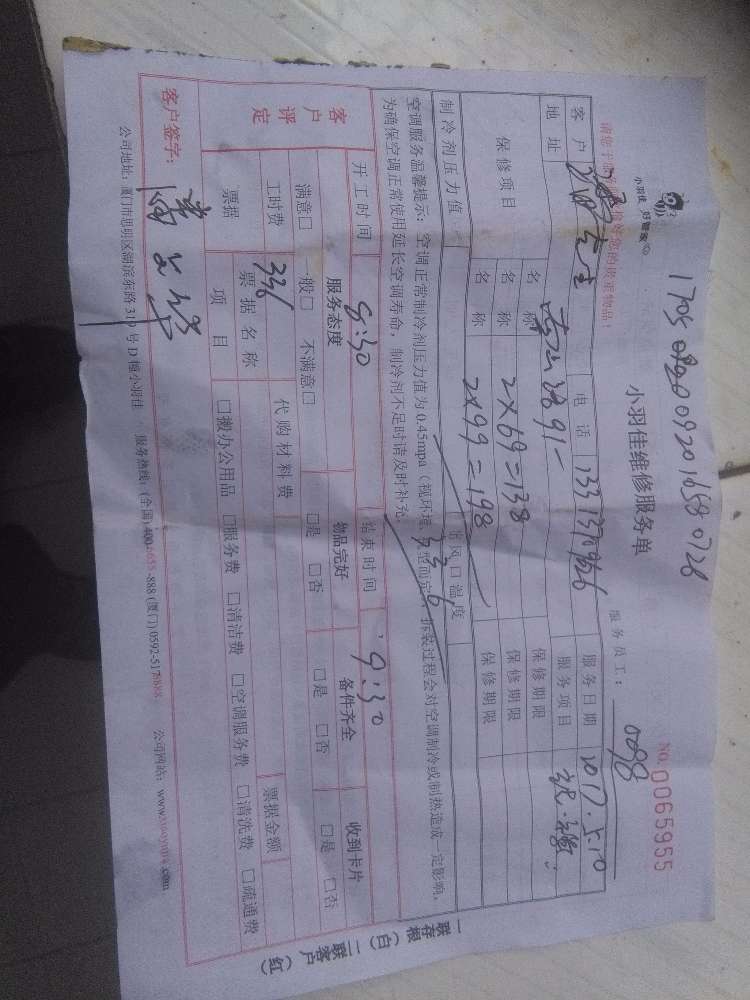 小羽佳 好管家
小羽佳维修服务单
NO. 0065955
服务员工: 0098
客户 先生 电话 服务日期 2017.5.10
地址 服务项目
保修项目 名称 保修期限
名称 2×69=138 保修期限
名称 2×99=198 保修期限
制冷剂压力值 出风口温度
336
空调服务温馨提示: 空调正常制冷剂压力值为0.45mpa (视环境、机型而定), 拆装过程会对空调制冷或制热造成一定影响,
为确保空调正常使用延长空调寿命, 制冷剂不足时请及时补充。
开工时间 8:30 结束时间 9:30
客户评定 服务态度 物品完好 备件齐全 收到卡片
满意□ 一般□ 不满意□ □是 □否 □是 □否 □是 □否
工时费 336 代购材料费 票据金额
票据 票据名称
项目 □搬办公用品 □服务费 □清洁费 □空调服务费 □清洗费 □疏通费
客户签字:
公司地址: 厦门市思明区湖滨东路319号D幢小羽佳 服务热线: (全国) 400-6655-888 (厦门) 0592-5178888 公司网站:
一联存根 (白) 二联客户 (红)